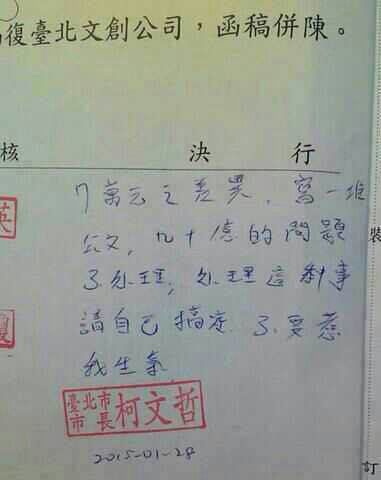 復臺北文創公司，函稿併陳。
核 決 行
7萬元之差異，寫一堆
公文，九十億的問題
不處理，處理這事
請自己搞定，不要惹
我生氣
英
裝
臺北市市長柯文哲
2015-01-28
訂